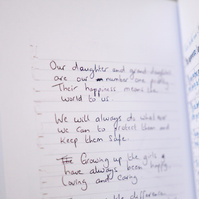 Our daughter and grand daughter
are our number one priority.
Their happiness means the
world to us.
We will always do what ever
we can to protect them and
keep them safe.
The Growing up the girls
have always been happy,
loving and caring